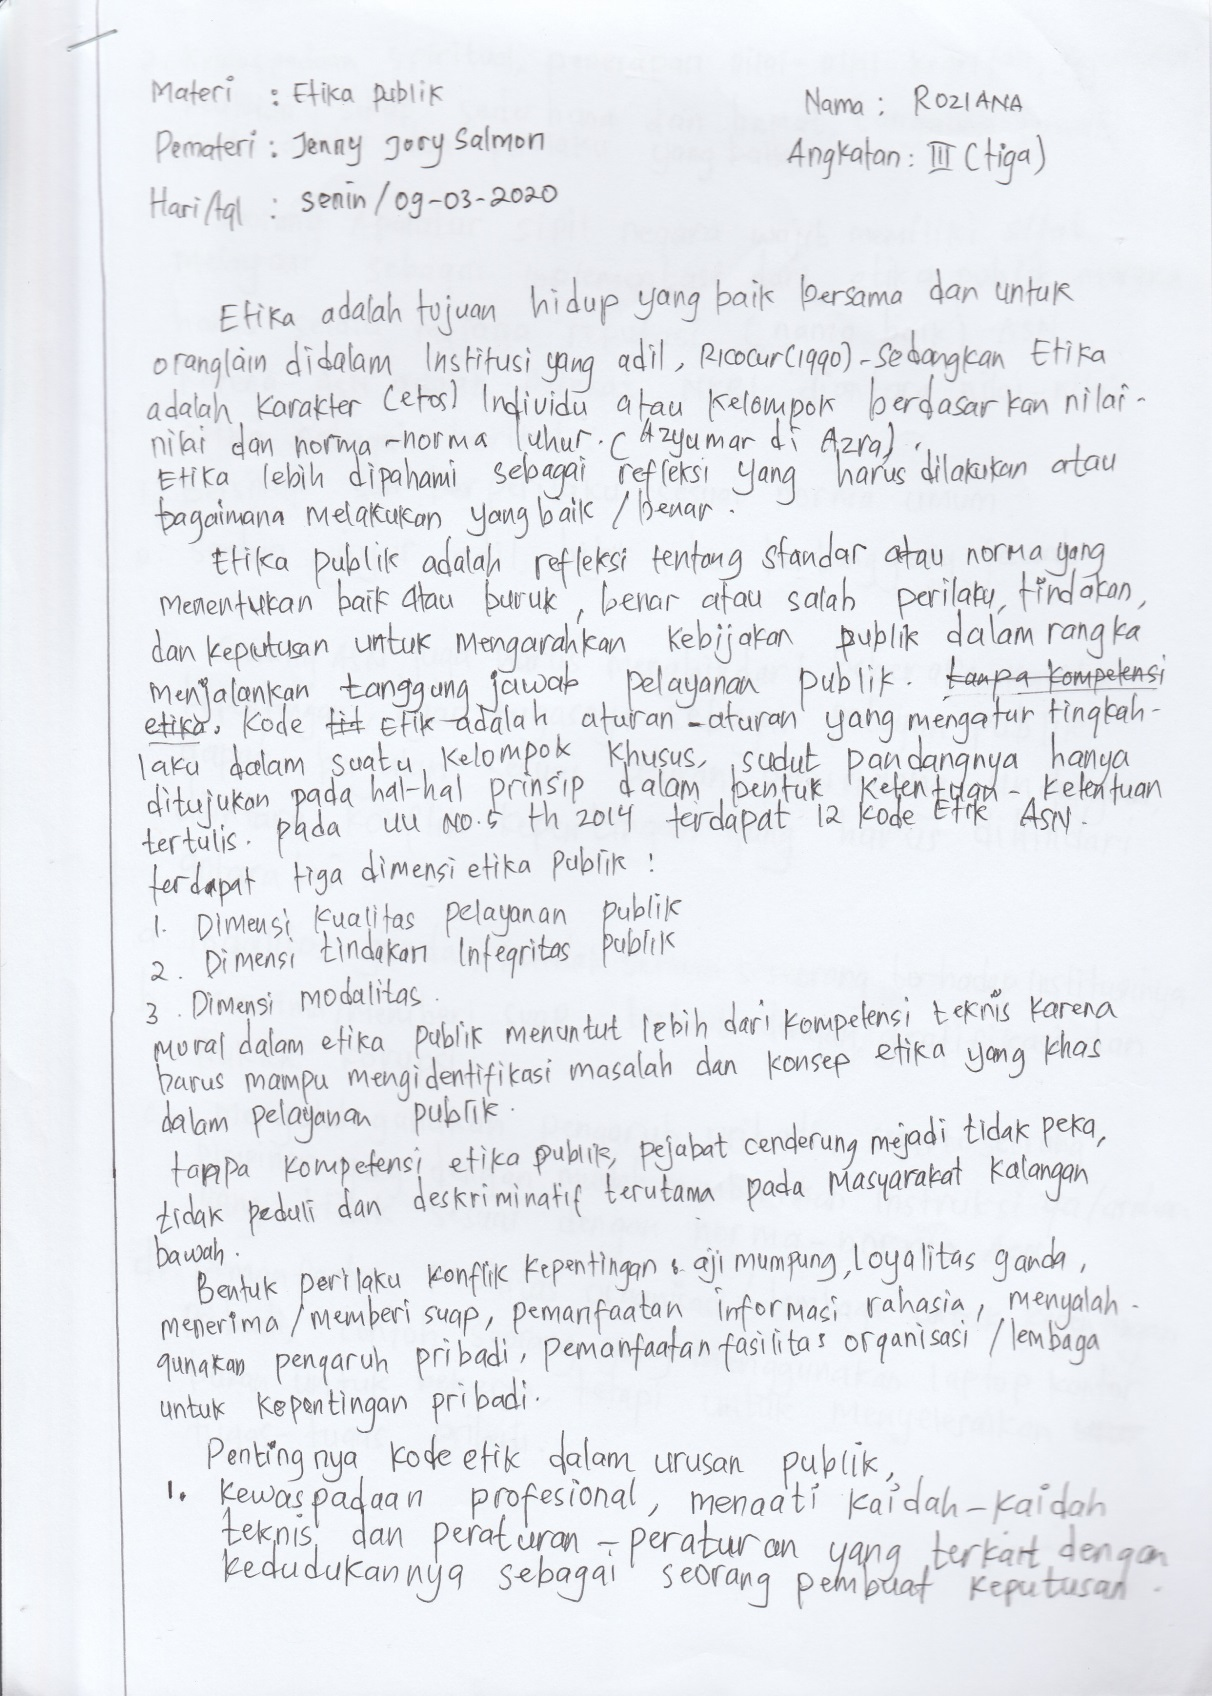 Materi : Etika publik
Nama : ROZIANA
Pemateri : Jenny Jory Salmon
Angkatan : III (tiga)
Hari/tgl : senin/09-03-2020
Etika adalah tujuan hidup yang baik bersama dan untuk
oranglain didalam Institusi yang adil, Ricocur(1990)-Sedangkan Etika
adalah Karakter (etos) Individu atau Kelompok berdasarkan nilai-
nilai dan norma-norma luhur. (Azyumar di Azra).
Etika lebih dipahami sebagai refleksi yang harus dilakukan atau
bagaimana Melakukan yang baik / benar.
Etika publik adalah refleksi tentang standar atau norma yang
Menentukan baik atau buruk, benar atau salah perilaku, tindakan,
dan keputusan untuk mengarahkan Kebijakan publik dalam rangka
Menjalankan tanggung jawab pelayanan publik. tanpa kompetensi
etika. Kode tit Etik adalah aturan-aturan yang mengatur tingkah-
laku dalam suatu Kelompok Khusus, sudut pandangnya hanya
ditujukan pada hal-hal prinsip dalam bentuk Ketentuan-Ketentuan
tertulis. pada UU NO.5 th 2014 terdapat 12 Kode Etik ASN.
terdapat tiga dimensi etika publik :
1. Dimensi Kualitas pelayanan publik
2. Dimensi tindakan Integritas publik
3. Dimensi modalitas.
Moral dalam etika publik menuntut lebih dari kompetensi teknis karena
harus mampu mengidentifikasi masalah dan konsep etika yang khas
dalam pelayanan publik.
tanpa kompetensi etika publik, pejabat cenderung mejadi tidak peka,
tidak peduli dan deskriminatif terutama pada Masyarakat Kalangan
bawah.
Bentuk perilaku konflik kepentingan : aji mumpung, loyalitas ganda,
menerima/memberi suap, pemanfaatan informasi rahasia, menyalah-
gunakan pengaruh pribadi, Pemanfaatan fasilitas organisasi / lembaga
untuk kepentingan pribadi.
Pentingnya kode etik dalam urusan publik,
1. Kewaspadaan profesional, menaati Kaidah-Kaidah
teknis dan peraturan-peraturan yang terkait dengan
kedudukannya sebagai seorang pembuat Keputusan.